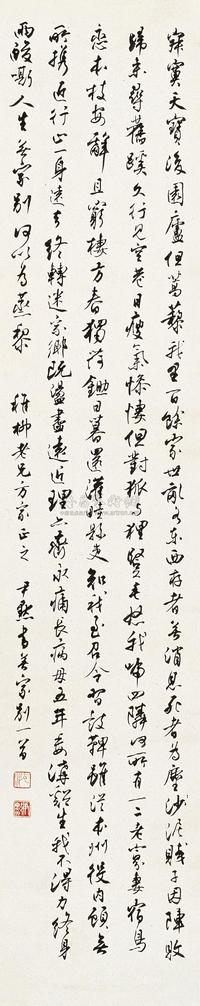 寂寞天寶後園廬但蒿藜我里百餘家世亂各東西存者無消息死者為塵沙泥賤子因陣敗
歸來尋舊蹊久行見空巷日瘦氣慘悽但對狐与狸豎毛怒我啼四隣何所有一二老寡妻宿鳥
戀本枝安辭且窮棲方春獨荷鋤日暮還灌畦縣吏知我至召令習鼓鞞雖從本州役內顧無
所攜近行止一身遠去終轉迷家鄉既盪盡遠近理亦齊永痛長病母五年委溝谿生我不得力終身
兩酸嘶人生無家別何以為烝黎 稚柳老兄方家正之 尹默書無家別一首